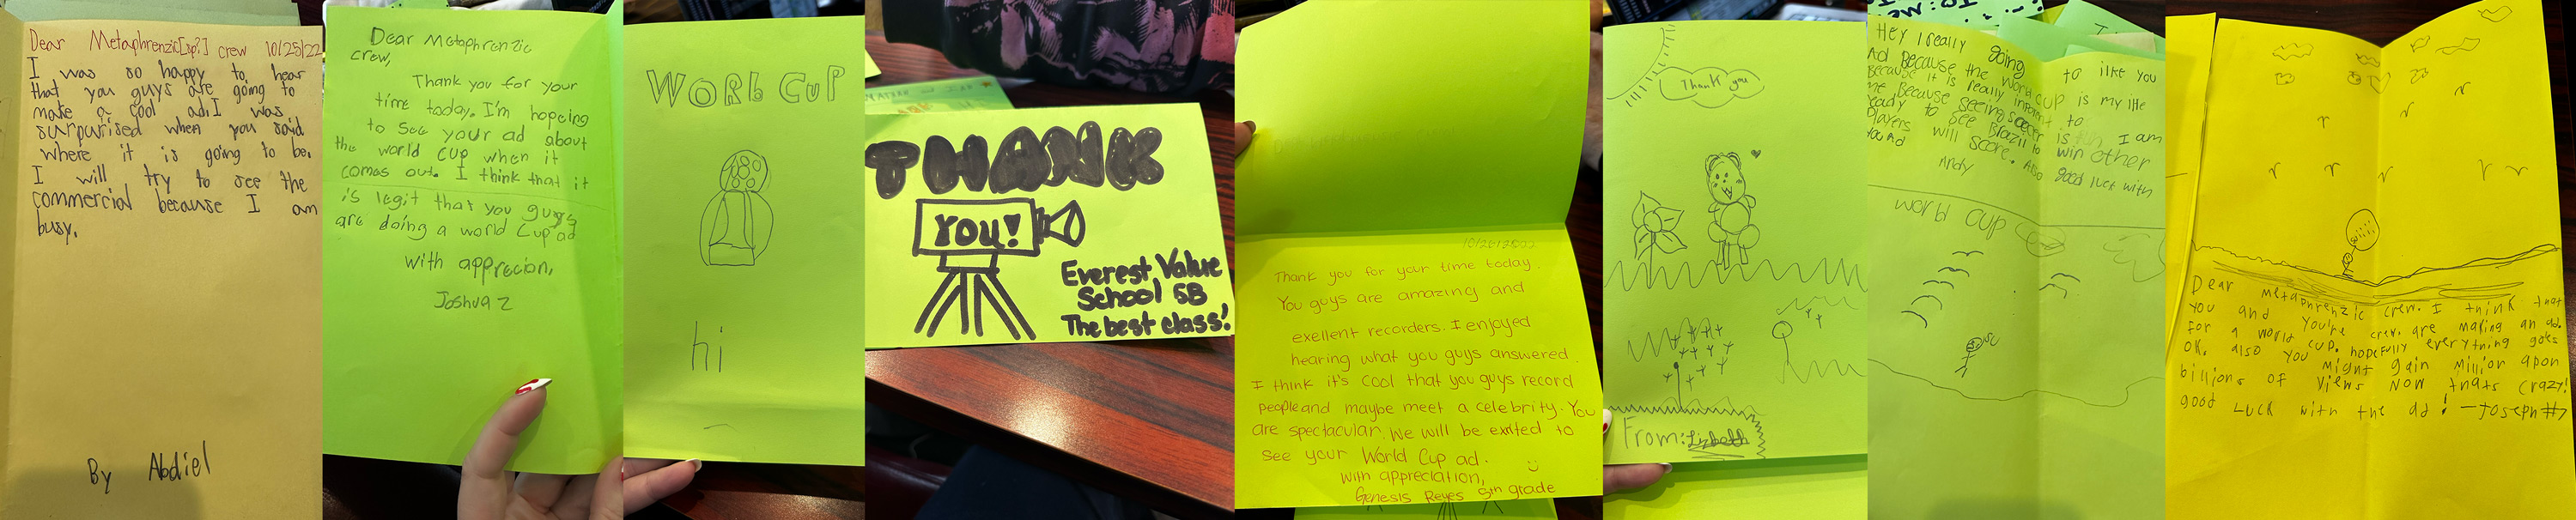 Dear Metaphrenzic[sp?] crew 10/25/22
I was so happy to hear
that you guys are going to
make a cool ad. I was
surpurised when you said
where it is going to be.
I will try to see the
commercial because I am
busy.
By Abdiel
Dear Metaphrenzic
crew,
Thank you for your
time today. I'm hopeing
to see your ad about
the world cup when it
comes out. I think that it
is legit that you guys
are doing a world Cup ad
with apprecion,
Joshua Z
WORLD CUP
hi
THANK
YOU!
Everest Value
School 5B
The best class!
Thank you for your time today.
You guys are amazing and
exellent recorders. I enjoyed
hearing what you guys answered.
I think it's cool that you guys record
people and maybe meet a celebrity. You
are spectacular. We will be exited to
see your World Cup ad.
with appreciation,
Genesis Reyes 5th grade
Thank you
From: Lizbeth
Hey I really going to ilke you
Ad Because the World cup is my ilfe
Because it is really to
me Because seeing soccer is I am
ready to see Brazil to win other
Players will score. Also good luck with
you Ad
Andy
world cup
Dear metaphrenzic crew. I think that
you and you're crew are making an ad.
For a world cup. hopefully everything goes
OK. also you might gain millior apon
billions of views NOW thats crazy!
good LUCK with the ad! —Joseph #7